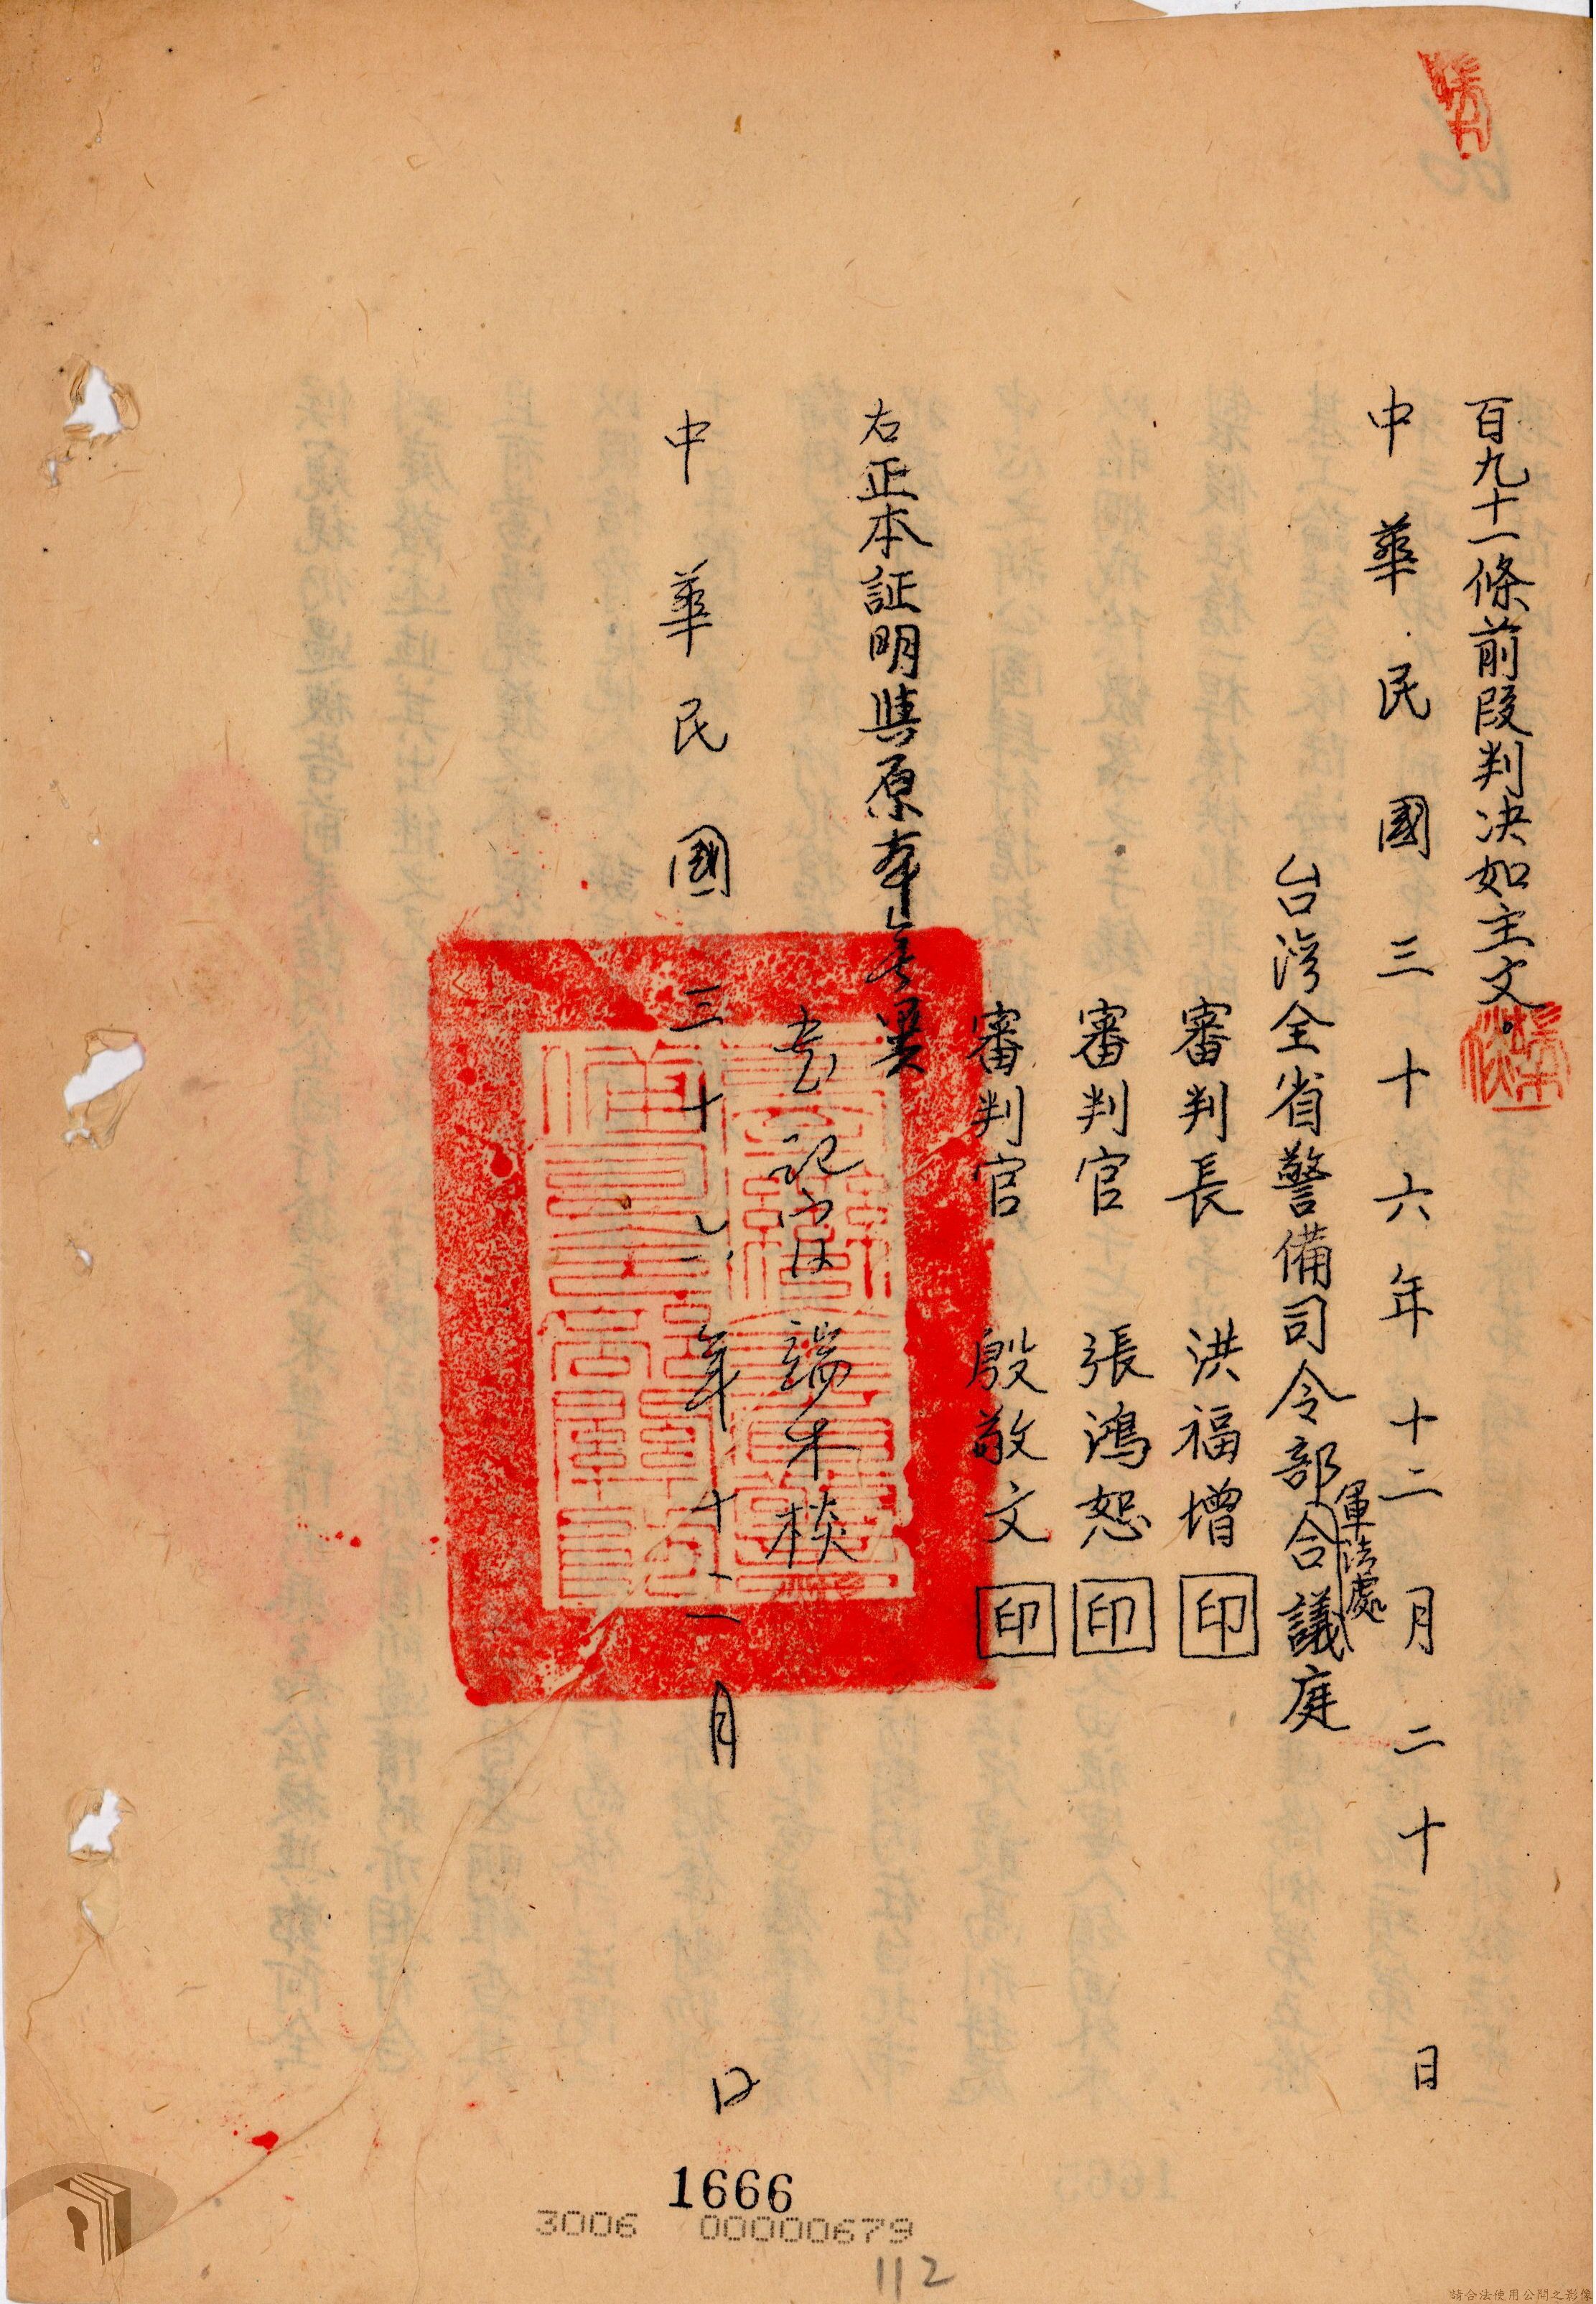 百九十一條前段判決如主文。
中華民國三十六年十二月二十日
台灣全省警備司令部軍法處合議庭
審判長 洪福增 印
審判官 張鴻恕 印
審判官 殷敬文 印
右正本証明與原本無異
書記官 端木棪
中華民國三十六年十二月 日
1666
3006 00000679
112
請合法使用公開之影像